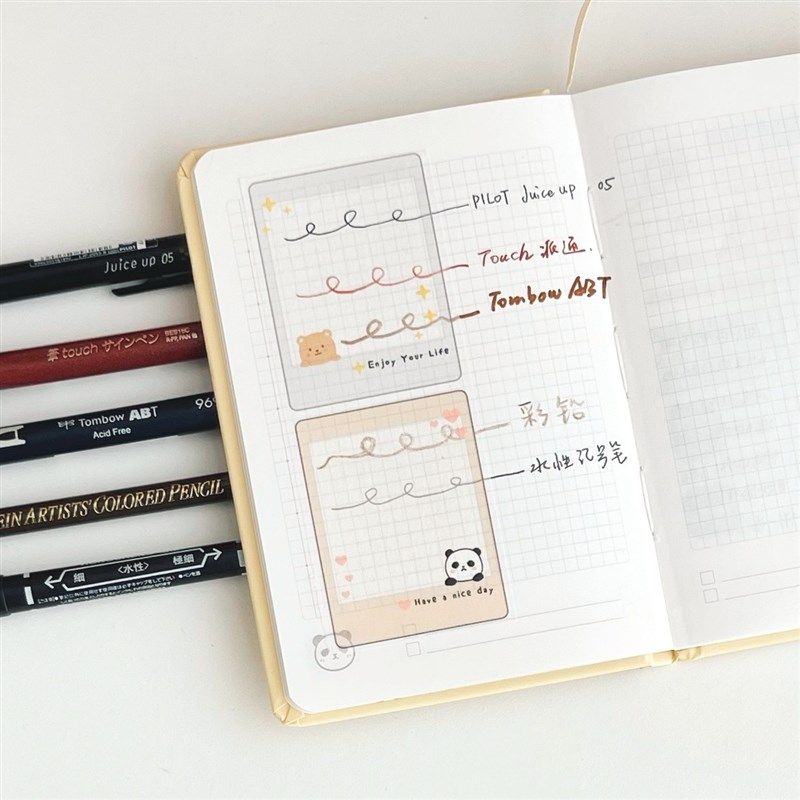 Juice up 05
筆touch サインペン
SES15C
Tombow ABT
Acid Free
96
EIN ARTISTS' COLORED PENCIL
細 〈水性〉 極細
PILOT Juice up 05
Touch 派通.
Tombow ABT
Enjoy Your Life
彩铅
水性记号笔
Have a nice day